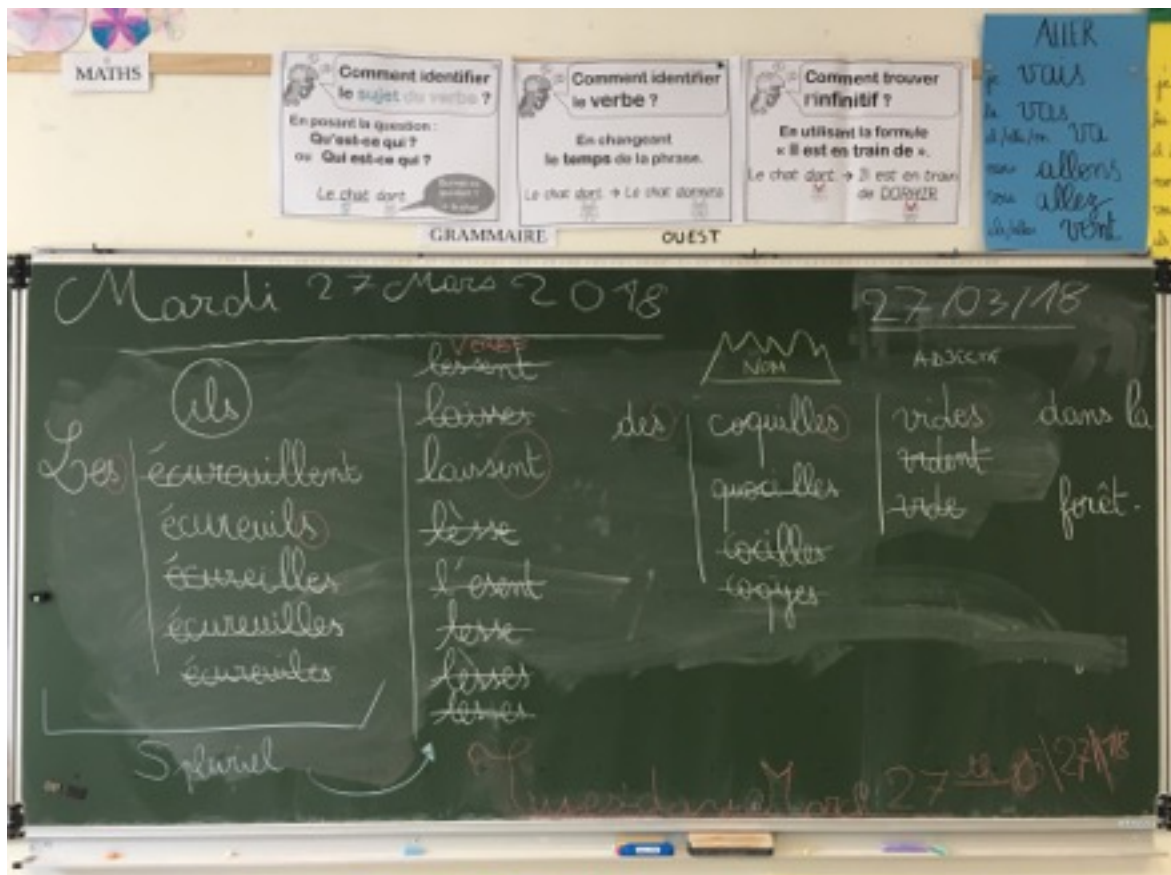 MATHS
Comment identifier
le sujet du verbe ?
En posant la question :
Qu'est-ce qui ?
ou Qui est-ce qui ?
Le chat dort
Comment identifier
le verbe ?
En changeant
le temps de la phrase.
Le chat dort → Le chat dormira
Comment trouver
l'infinitif ?
En utilisant la formule
« Il est en train de ».
Le chat dort → Il est en train
de DORMIR
ALLER
je vais
tu vas
il/elle/on va
nous allons
vous allez
ils/elles vont
GRAMMAIRE
OUEST
Mardi 27 Mars 2018
27/03/18
ils
VERBE
NOM
ADJECTIF
Les
écureuillent
écureuils
écureilles
écureuilles
écureuiles
lessent
laisses
laissent
lèsse
l'esent
lesse
lèsses
lesses
des
coquilles
quocilles
cocilles
coqyes
vides
vident
vide
dans la
forêt.
S pluriel
27